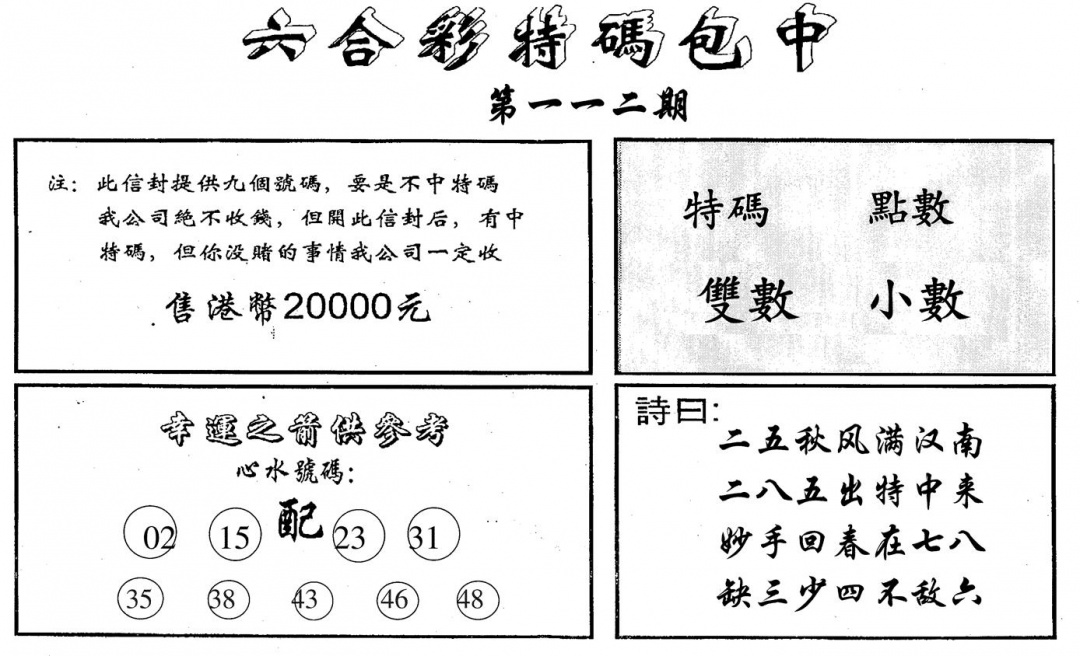 六合彩特碼包中
第一一二期
注：此信封提供九個號碼，要是不中特碼
我公司絕不收錢，但開此信封后，有中
特碼，但你没賭的事情我公司一定收
售港幣20000元
特碼 點數
雙數 小數
幸運之箭供參考
心水號碼：
配
02 15 23 31
35 38 43 46 48
詩曰：
二五秋风满汉南
二八五出特中来
妙手回春在七八
缺三少四不敌六